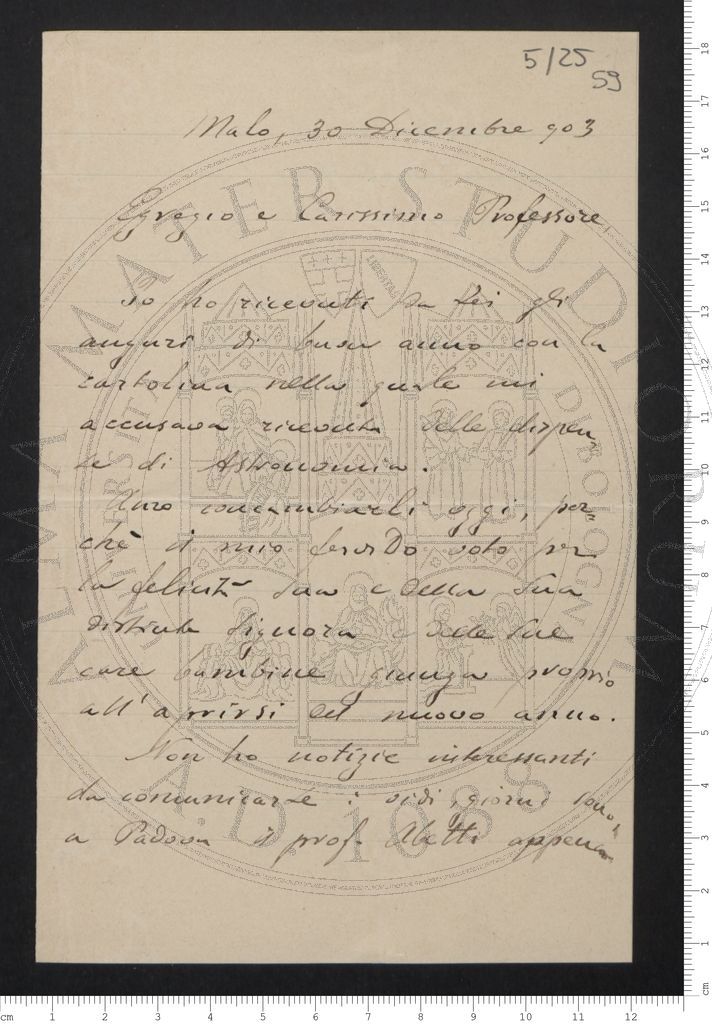 5/25
59
Malo, 30 Dicembre 903
Egregio e Carissimo Professore,
Io ho ricevuti da Lei gli
auguri di buon anno con la
cartolina nella quale mi
accusava ricevuta delle dispen=
se di Astronomia.
Amo concambiarli oggi, per=
chè il mio fervido voto per
la felicità Sua e della Sua
distinta Signora e delle Sue
care bambine giunga proprio
all'aprirsi del nuovo anno.
Non ho notizie interessanti
da comunicarLe: vidi giorni sono
a Padova il prof. Abetti appena
ALMA MATER STUDIORUM
UNIVERSITÀ DI BOLOGNA
A.D. 1088
LIBERTAS
cm 1 2 3 4 5 6 7 8 9 10 11 12
cm 1 2 3 4 5 6 7 8 9 10 11 12 13 14 15 16 17 18